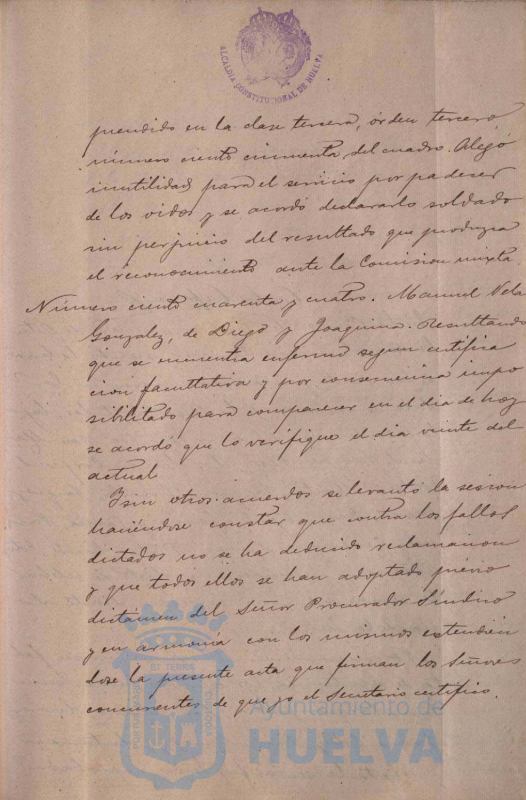 ALCALDIA CONSTITUCIONAL DE HUELVA
prendido en la clase tercera, órden tercero,
número ciento cincuenta del cuadro. Alegó
inutilidad para el servicio por padecer
de los oidos y se acordó declararlo soldado
sin perjuicio del resultado que produzca
el reconocimiento ante la Comision mixta.
Número ciento cuarenta y cuatro. Manuel Vela
Gonzalez, de Diego y Joaquina. Resultando
que se encuentra enfermo segun certifica
cion facultativa y por consecuencia impo
sibilitado para comparecer en el dia de hoy
se acordó que lo verifique el dia veinte del
actual.
Y sin otros acuerdos se levantó la sesion
haciéndose constar que contra los fallos
dictados no se ha deducido reclamacion
y que todos ellos se han adoptado prévio
dictámen del Señor Procurador Síndico
y en armonía con los mismos extendién
dose la presente acta que firman los Señores
concurrentes de que yo el Secretario certifico.
Ayuntamiento de
HUELVA